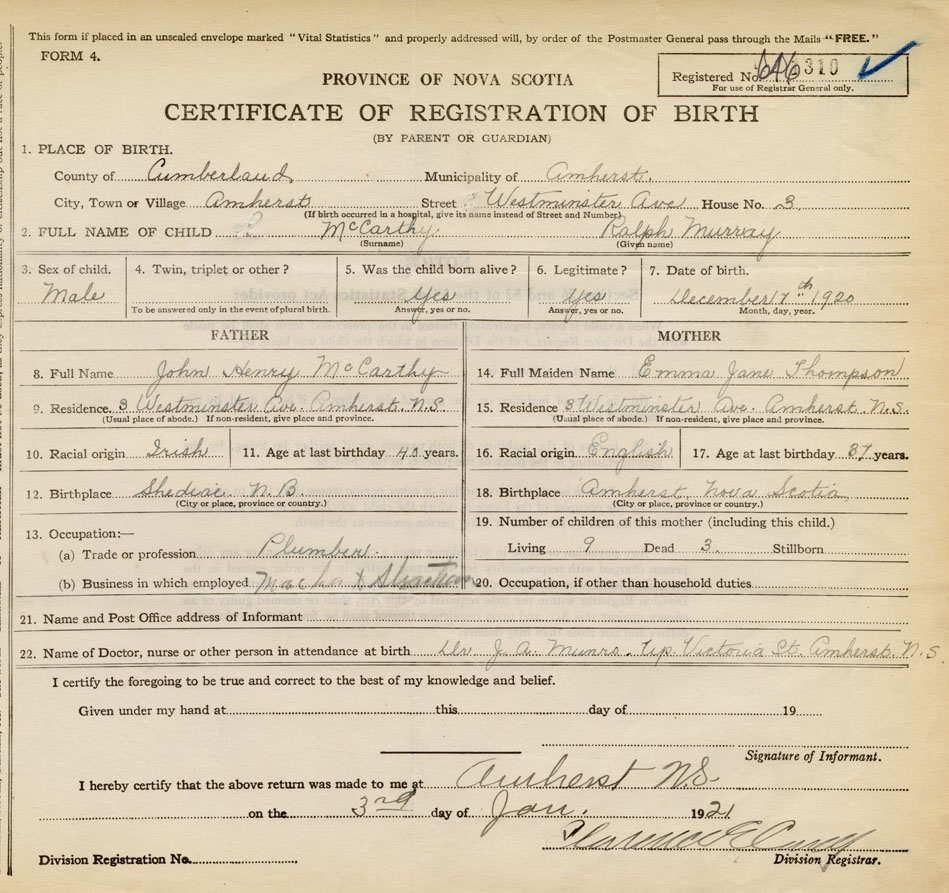 This form if placed in an unsealed envelope marked "Vital Statistics" and properly addressed will, by order of the Postmaster General pass through the Mails "FREE."
FORM 4.
Registered No. 646310
For use of Registrar General only.
PROVINCE OF NOVA SCOTIA
CERTIFICATE OF REGISTRATION OF BIRTH
(BY PARENT OR GUARDIAN)
1. PLACE OF BIRTH.
County of Cumberland Municipality of Amherst.
City, Town or Village Amherst Street Westminster Ave House No. 3
(If birth occurred in a hospital, give its name instead of Street and Number)
2. FULL NAME OF CHILD McCarthy Ralph Murray
(Surname) (Given name)
3. Sex of child. 4. Twin, triplet or other? 5. Was the child born alive? 6. Legitimate? 7. Date of birth.
Male Yes Yes December 7th 1920
To be answered only in the event of plural birth. Answer, yes or no. Answer, yes or no. Month, day, year.
FATHER MOTHER
8. Full Name John Henry McCarthy 14. Full Maiden Name Emma Jane Thompson
9. Residence. 3 Westminster Ave. Amherst. N.S. 15. Residence 3 Westminster Ave. Amherst. N.S.
(Usual place of abode.) If non-resident, give place and province. (Usual place of abode.) If non-resident, give place and province.
10. Racial origin Irish 11. Age at last birthday 40 years. 16. Racial origin English 17. Age at last birthday 37 years.
12. Birthplace Shediac N.B. 18. Birthplace Amherst, Nova Scotia
(City or place, province or country.) (City or place, province or country.)
13. Occupation:— 19. Number of children of this mother (including this child.)
(a) Trade or profession Plumber. Living 9 Dead 3. Stillborn
(b) Business in which employed 20. Occupation, if other than household duties
21. Name and Post Office address of Informant
22. Name of Doctor, nurse or other person in attendance at birth Dr J. A. Munro. Victoria St. Amherst. N.S.
I certify the foregoing to be true and correct to the best of my knowledge and belief.
Given under my hand at this day of 19
Signature of Informant.
I hereby certify that the above return was made to me at Amherst N.S.
on the 3rd day of Jan. 1921
Clarence E
Division Registration No. Division Registrar.